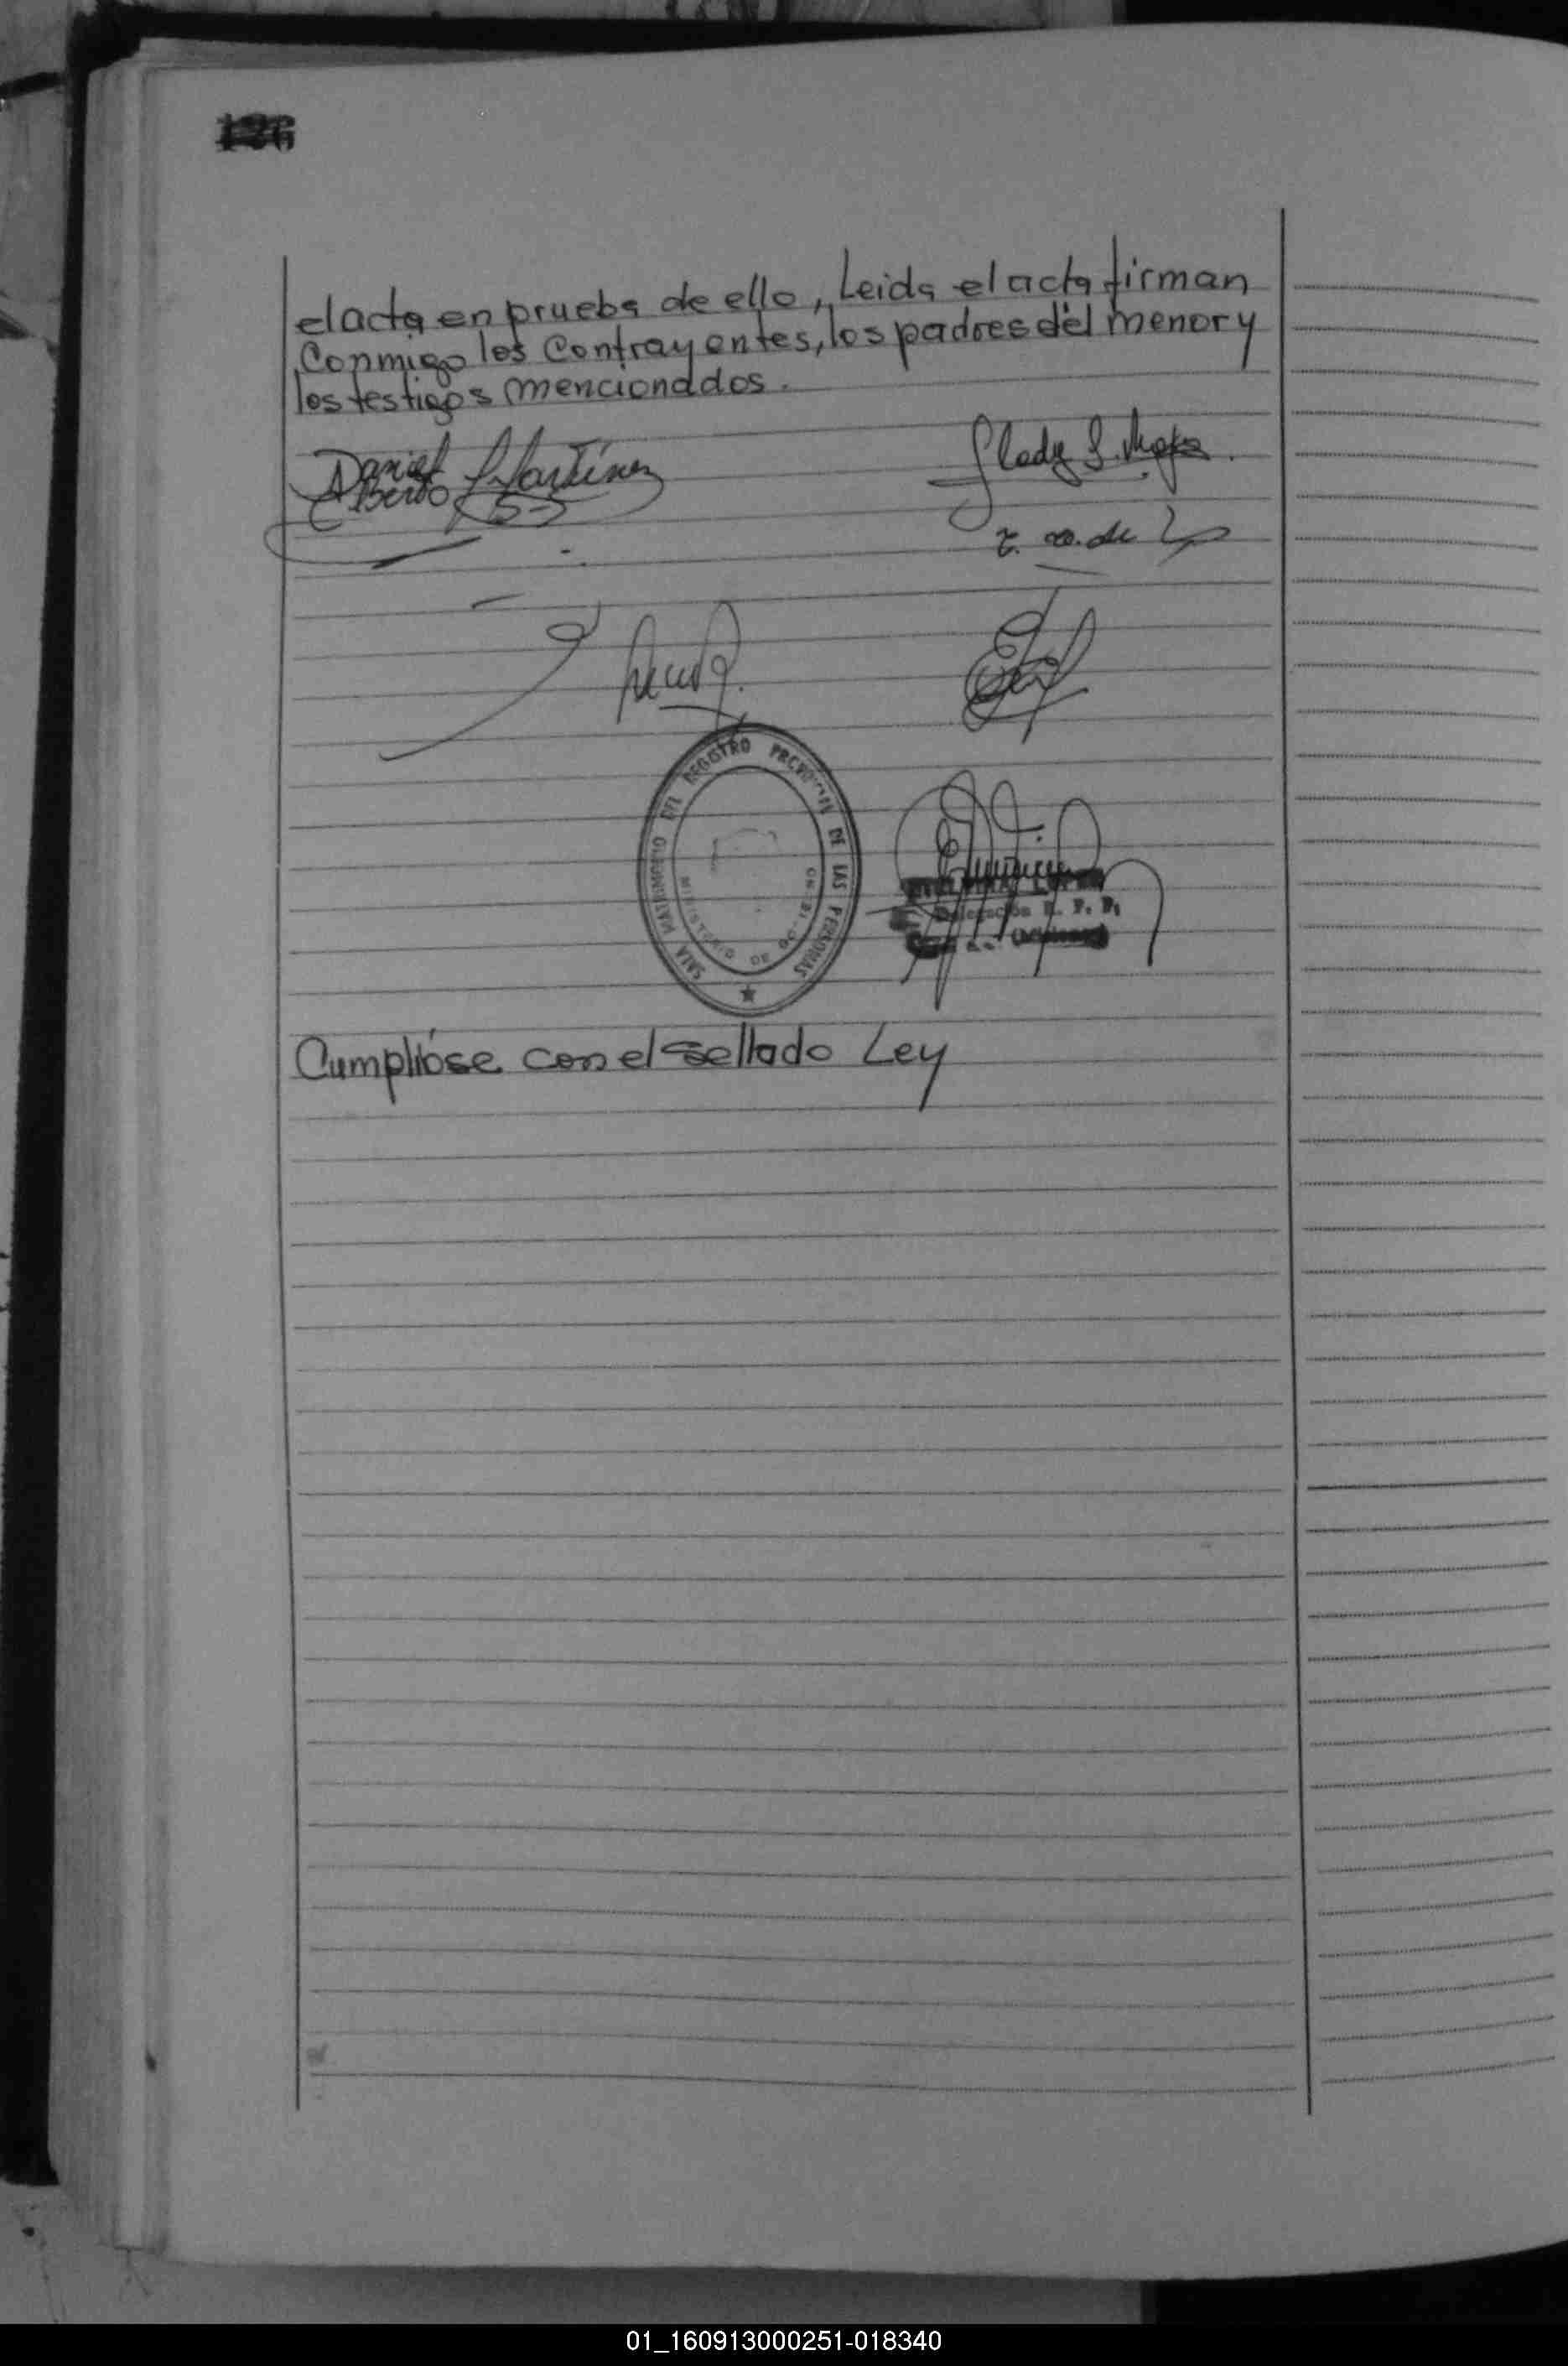 126
el acta en prueba de ello, Leida el acta firman
Conmigo los Contrayentes, los padres del menor y
los testigos mencionados.
Daniel Martínez
Berto
Glady S.
SALA MATRIMONIO DEL REGISTRO PROVINCIAL DE LAS PERSONAS
MINISTERIO DE
Delegación R. P. P.
Cumplióse con el sellado Ley
01_160913000251-018340